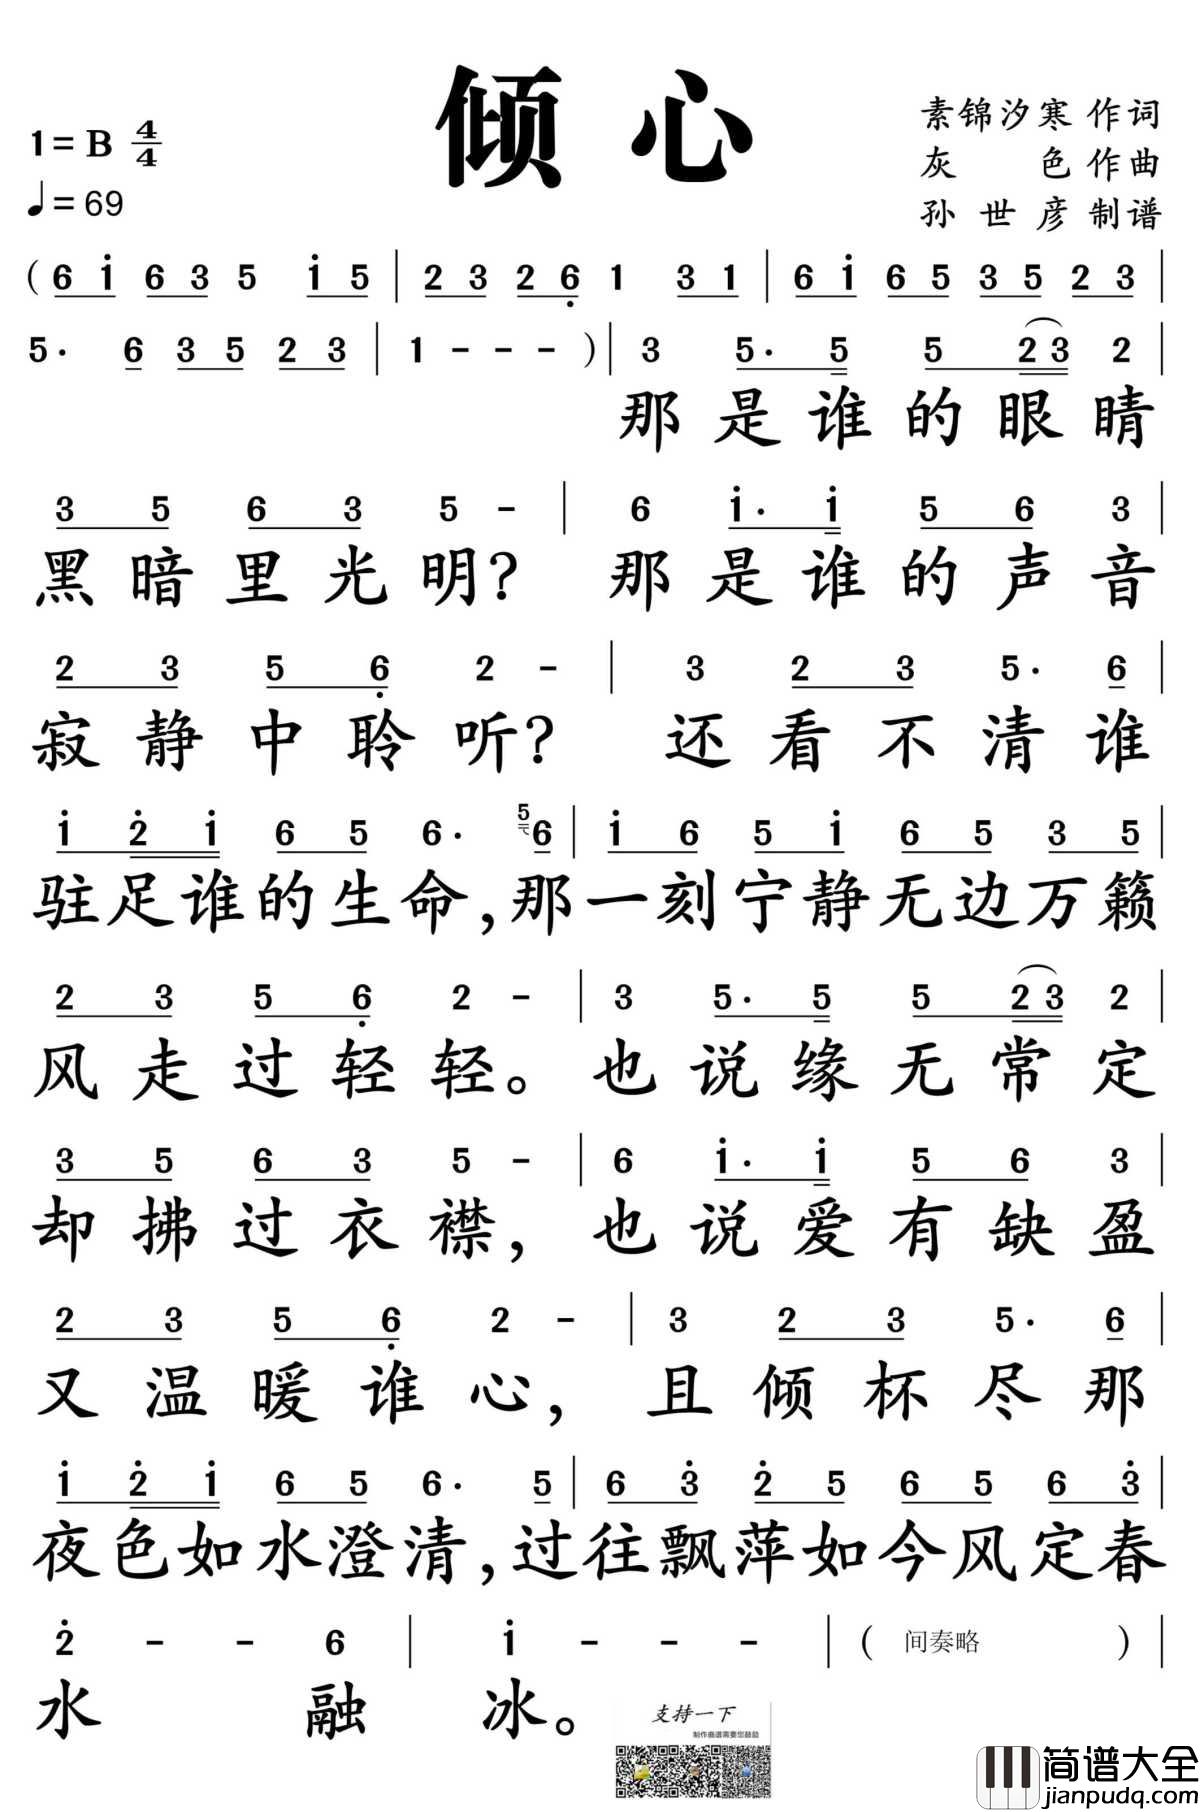 倾心
1=B 4/4
♩=69
素锦汐寒 作词
灰 色 作曲
孙世彦 制谱
( 6 i 6 3 5 i 5 | 2 3 2 6̣ 1 3 1 | 6 i 6 5 3 5 2 3 |
5· 6 3 5 2 3 | 1 - - - ) | 3 5· 5 5 2 3 2 |
那是谁的眼睛
3 5 6 3 5 - | 6 i· i 5 6 3 |
黑暗里光明? 那是谁的声音
2 3 5 6̣ 2 - | 3 2 3 5· 6 |
寂静中聆听? 还看不清谁
i 2̇ i 6 5 6· 5 6 | i 6 5 i 6 5 3 5 |
驻足谁的生命,那一刻宁静无边万籁
2 3 5 6̣ 2 - | 3 5· 5 5 2 3 2 |
风走过轻轻。也说缘无常定
3 5 6 3 5 - | 6 i· i 5 6 3 |
却拂过衣襟,也说爱有缺盈
2 3 5 6̣ 2 - | 3 2 3 5· 6 |
又温暖谁心,且倾杯尽那
i 2̇ i 6 5 6· 5 | 6 3̇ 2̇ 5 6 5 6 3̇ |
夜色如水澄清,过往飘萍如今风定春
2̇ - - 6 | i - - - | ( 间奏略 ) |
水融冰。
支持一下
制作曲谱需要您鼓励
简谱大全
jianpudq.com